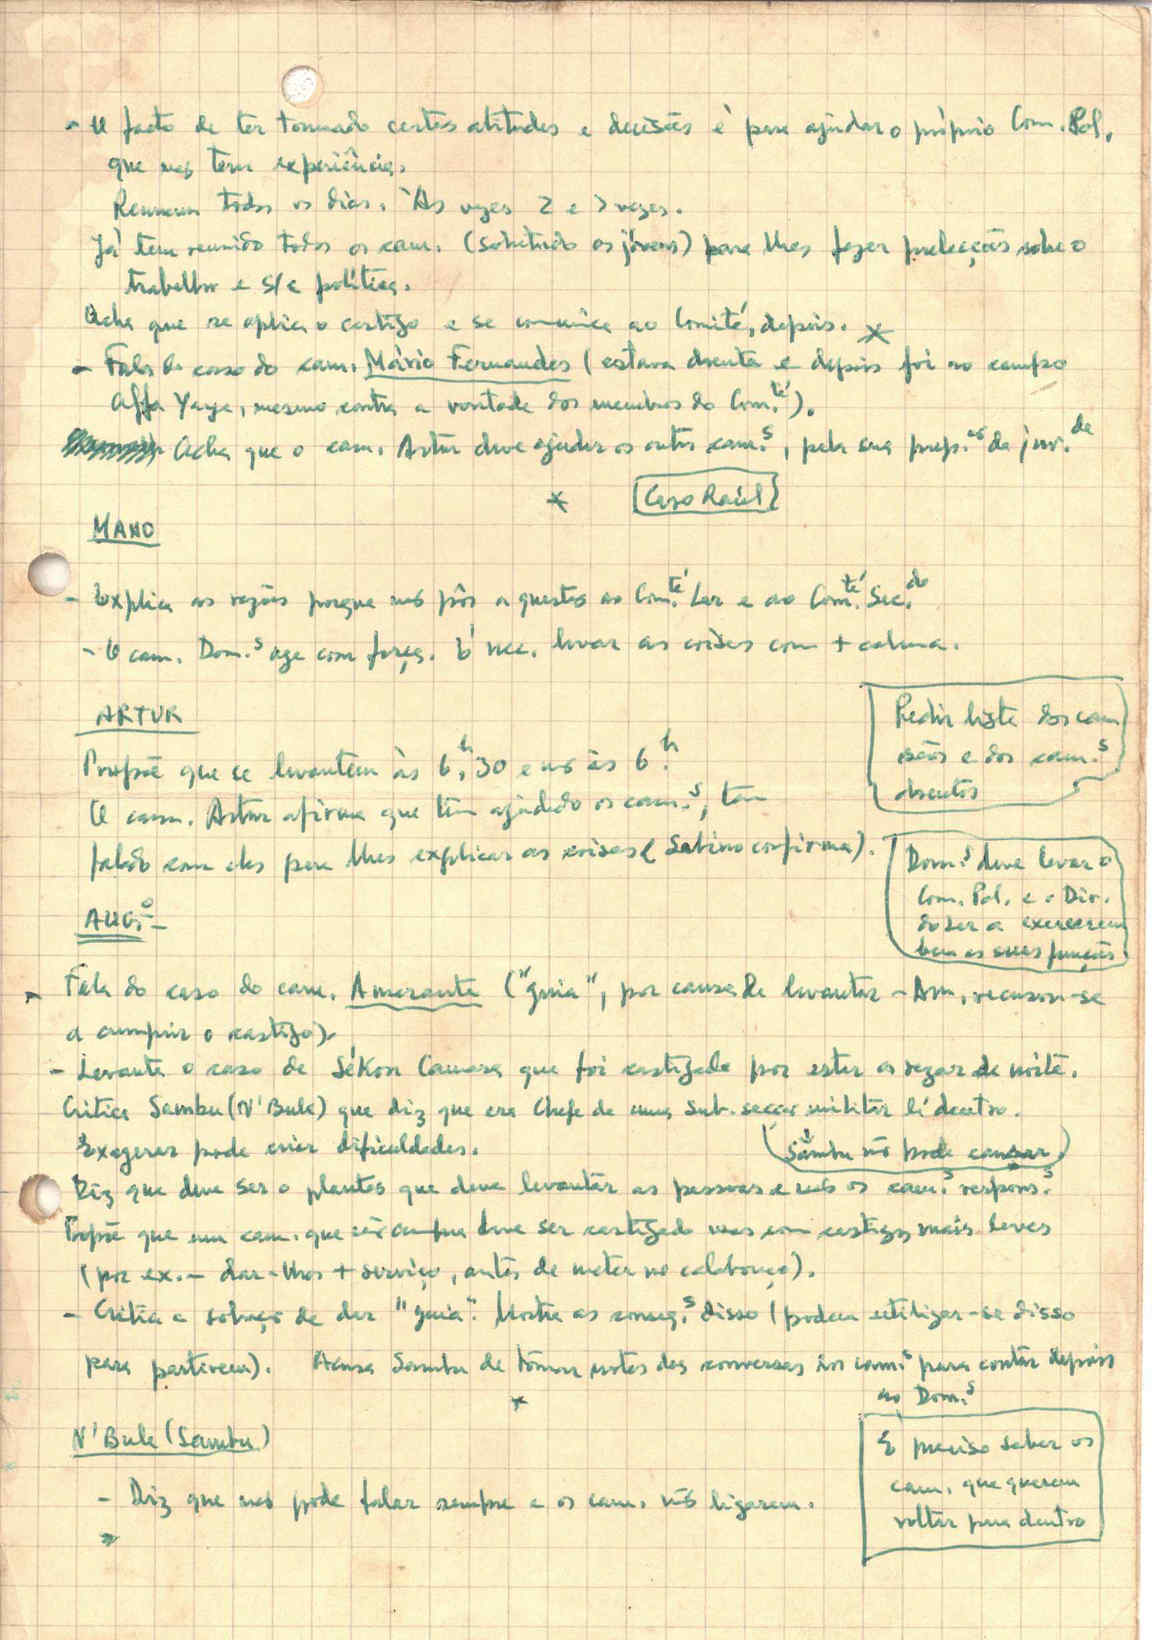 - O facto de ter tomado certas atitudes e decisões é para ajudar o próprio Com. Pol.
que não tem experiência.
Reunem todos os dias. Às vezes 2 e 3 vezes.
Já tem reunido todos os cam. (sobretudo os jóvens) para lhes fazer prelecções sobre o
trabalho e s/a política.
Acha que se aplica o castigo e se comunica ao Comité, depois. *
- Fala do caso do cam. Mário Fernandes (estava doente e depois foi ao campo
Alfa Yaya, mesmo contra a vontade dos membros do Com.té).
Acha que o cam. Artur deve ajudar os outros cam.s, pela sua prep. da juv.de
* Caso Raúl
MANO
- Explica as razões porque não pôs a questão ao Com.té Lar e ao Com.té Sec.do
- O cam. Dom.s age com força. É nec. levar as coisas com + calma.
ARTUR
Pedir lista dos cam
sãos e dos cam.s
doentes
Propõe que se levantem às 6,h30 e não às 6.h
O cam. Artur afirma que tem ajudado os cam.s, tem
falado com eles para lhes explicar as coisas (Sabino confirma).
Dom.s deve levar o
Com. Pol. e o Dir.
do Lar a exercerem
bem as suas funções.
AUG.o -
- Fala do caso do cam. Amarante ("guia", por causa de levantar - Am. recusou-se
a cumprir o castigo).
- Levanta o caso de Sékou Camara que foi castigado por estar a rezar de noite.
Critica Sambu (N'Bule) que diz que era Chefe de uma Sub-secção militar lá dentro.
Exagerar pode criar dificuldades.
(Sambu não pode cansar)
Diz que deve ser o plantão que deve levantar as pessoas e não os cam.s respons.s
Propõe que um cam. que não cumpra deve ser castigado mas com castigos mais leves
(por ex. - dar-lhes + serviço, antes de meter no calabouço).
- Critica a solução de dar "guia". Mostra as conseq.s disso (podem utilizar-se disso
para partirem). Acusa Sambu de tomar notas das conversas dos cam.s para contar depois
ao Dom.s
*
N'Bule (Sambu)
- Diz que não pode falar sempre e os cam. não ligarem.
É preciso saber os
cam. que querem
voltar para dentro